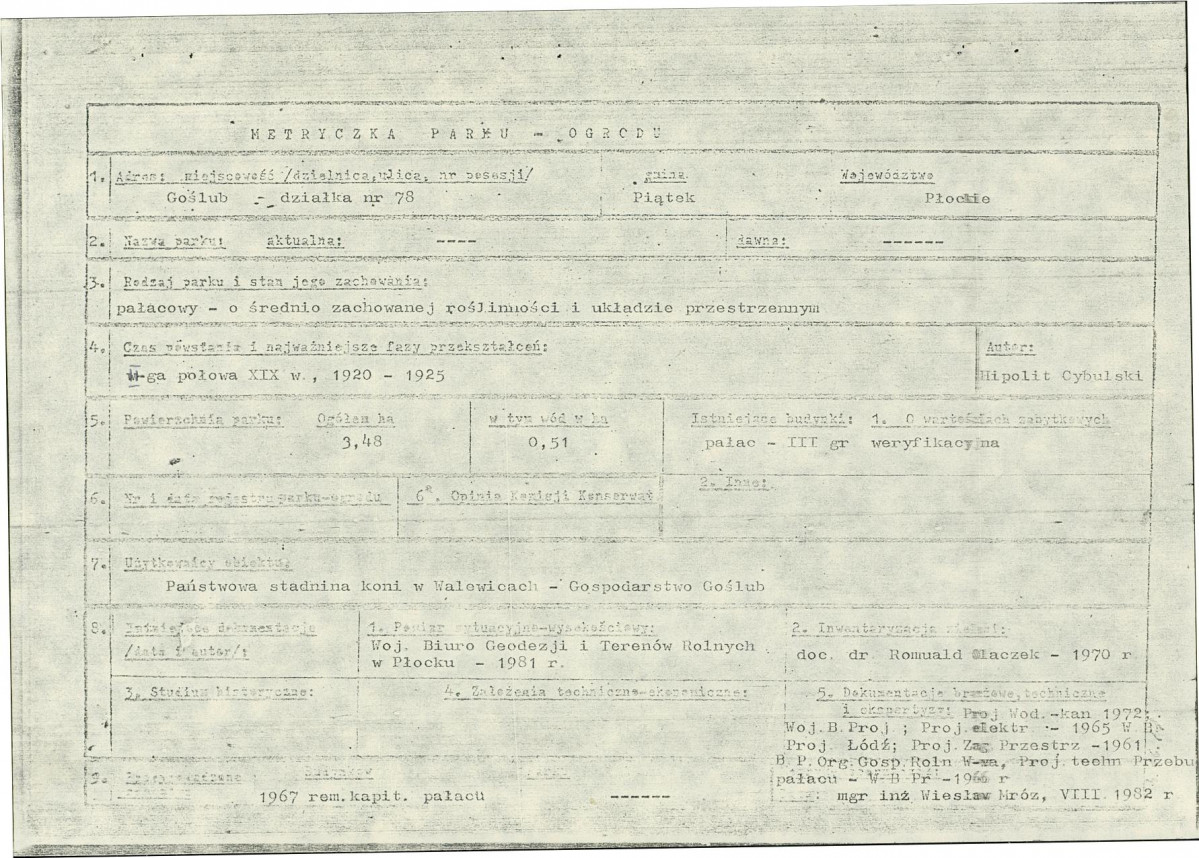 METRYCZKA PARKU - OGRODU
1. Adres: miejscowość /dzielnica, ulica, nr posesji/ gmina Województwo
Goślub - działka nr 78 Piątek Płockie
2. Nazwa parku: aktualna: ---- dawna: ------
3. Rodzaj parku i stan jego zachowania:
pałacowy - o średnio zachowanej roślinności i układzie przestrzennym
4. Czas powstania i najważniejsze fazy przekształceń: Autor:
II-ga połowa XIX w., 1920 - 1925 Hipolit Cybulski
5. Powierzchnia parku: Ogółem ha w tym wód w ha Istniejące budynki: 1. O wartościach zabytkowych
3,48 0,51 pałac - III gr weryfikacyjna
2. Inne:
6. Nr i data rejestru parku-ogrodu 6a. Opinia Komisji Konserwat.
7. Użytkownicy obiektu:
Państwowa stadnina koni w Walewicach - Gospodarstwo Goślub
8. Istniejąca dokumentacja 1. Pomiar sytuacyjno-wysokościowy: 2. Inwentaryzacja zieleni:
/data i autor/: Woj. Biuro Geodezji i Terenów Rolnych doc. dr. Romuald Olaczek - 1970 r
w Płocku - 1981 r.
3. Studium historyczne: 4. Założenia techniczno-ekonomiczne: 5. Dokumentacje branżowe, techniczne
i ekspertyzy: Proj Wod.-kan 1972;
Woj.B.Proj ; Proj.elektr - 1965 W B
Proj. Łódź; Proj.Zag Przestrz -1961
B.P.Org.Gosp.Roln W-wa, Proj.techn Przebu
pałacu - W B Pr -1966 r
9. Przeprowadzone budynków
1967 rem.kapit. pałacu ------ mgr inż Wiesław Mróz, VIII.1982 r